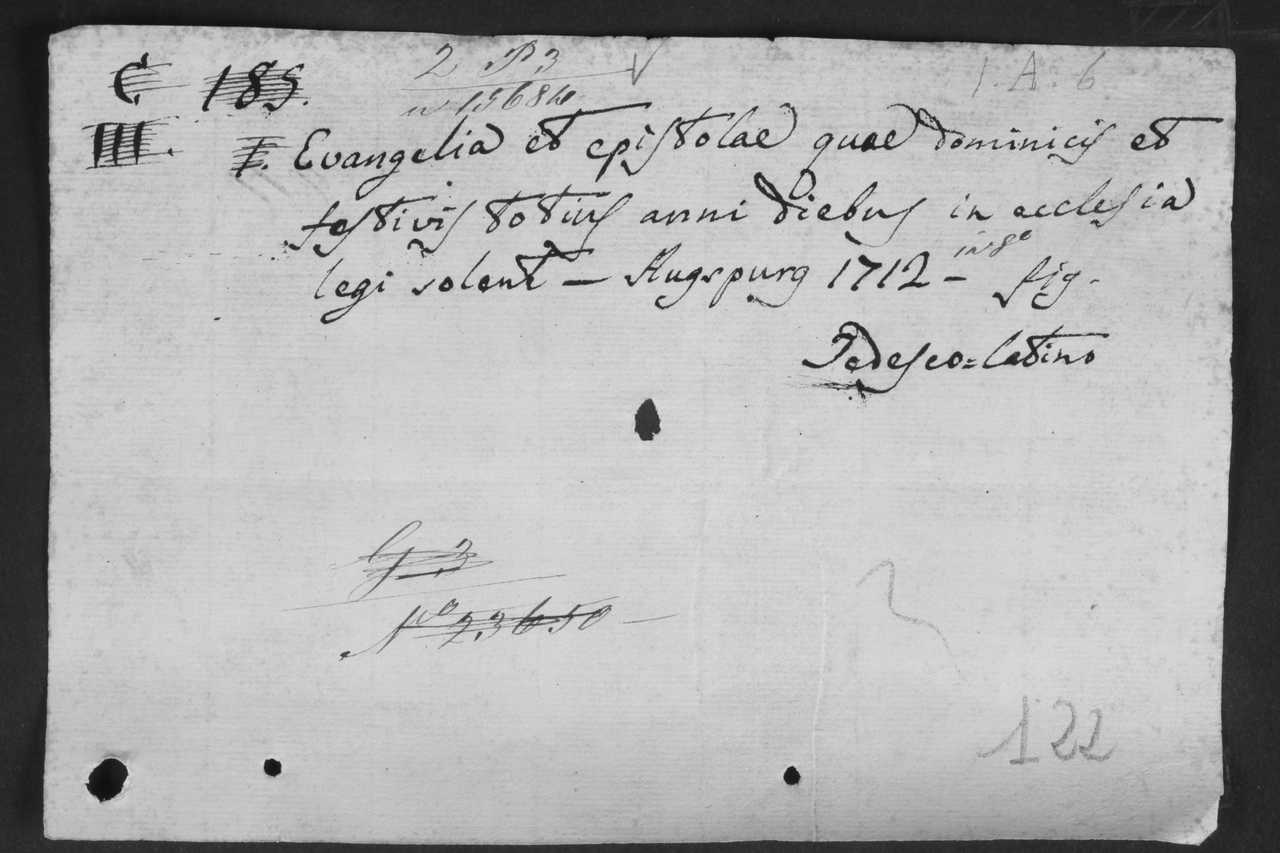 C. 185. 2 P3 1. A. 6
n 15684
III. I. Evangelia et epistolae quae dominicis et
festivis totius anni diebus in ecclesia
legi solent — Augspurg 1712 - in 8° fig.
Tedesco=Latino
G 3
N° 23650
122